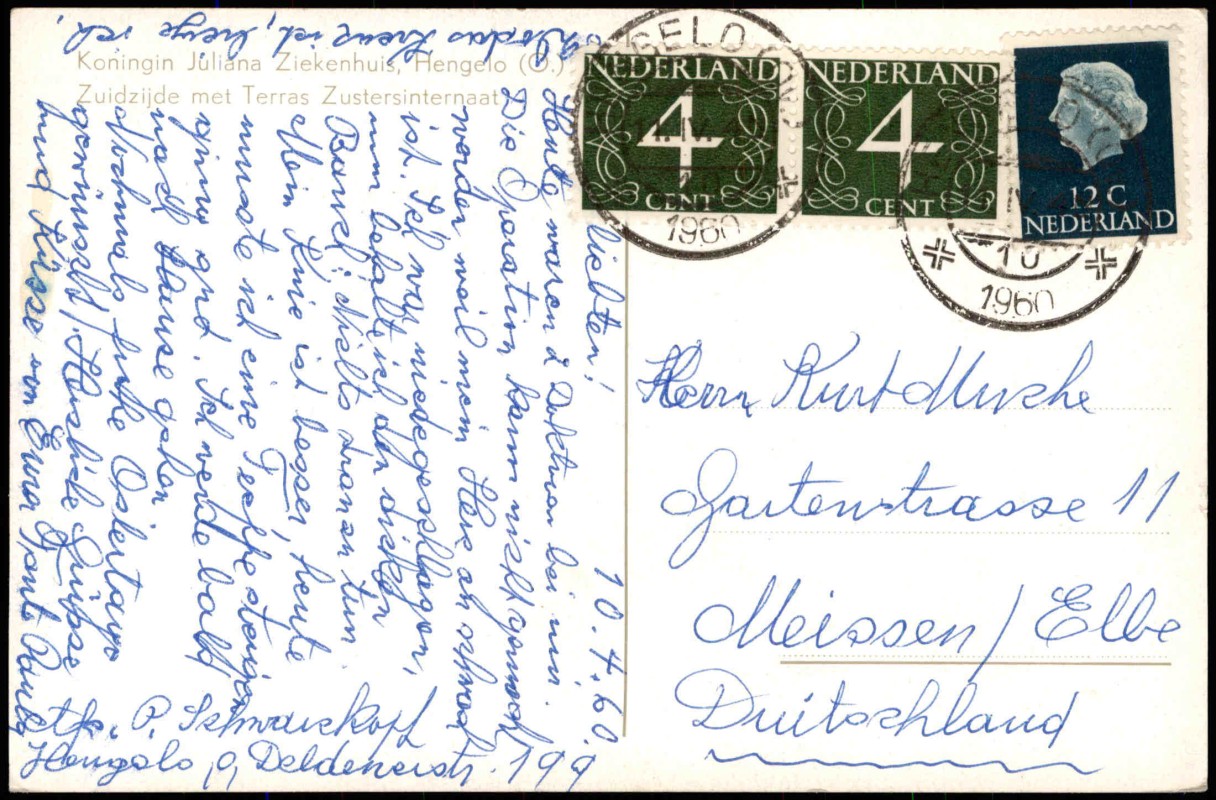 Koningin Juliana Ziekenhuis, Hengelo (O.)
Zuidzijde met Terras Zustersinternaat
NEDERLAND
4
CENT
NEDERLAND
4
CENT
12 C
NEDERLAND
GELO (O
1960
10
1960
10.4.60.
Lieben!
Heute waren 2 Doktoren bei mir.
Die Operation kann nicht gemacht
werden weil mein Herz zu schwach
ist. Ich war niedergeschlagen,
nun behalte ich den dicken
Bauch; nichts dranzu tun
Mein Knie ist besser, heute
musste ich eine Treppe steigen
ging gut. Ich werde bald
nach Hause gehen
Nochmals frohe Ostertage
gewünscht! Herzliche Grüsse
und Küsse von Eurer Tante
das Kreuz ist, liege ich
P. Schwarzkopf
Hengelo, O, Deldenerstr. 199
Herrn Kurt Mische
Gartenstrasse 11
Meissen/Elbe
Duitschland